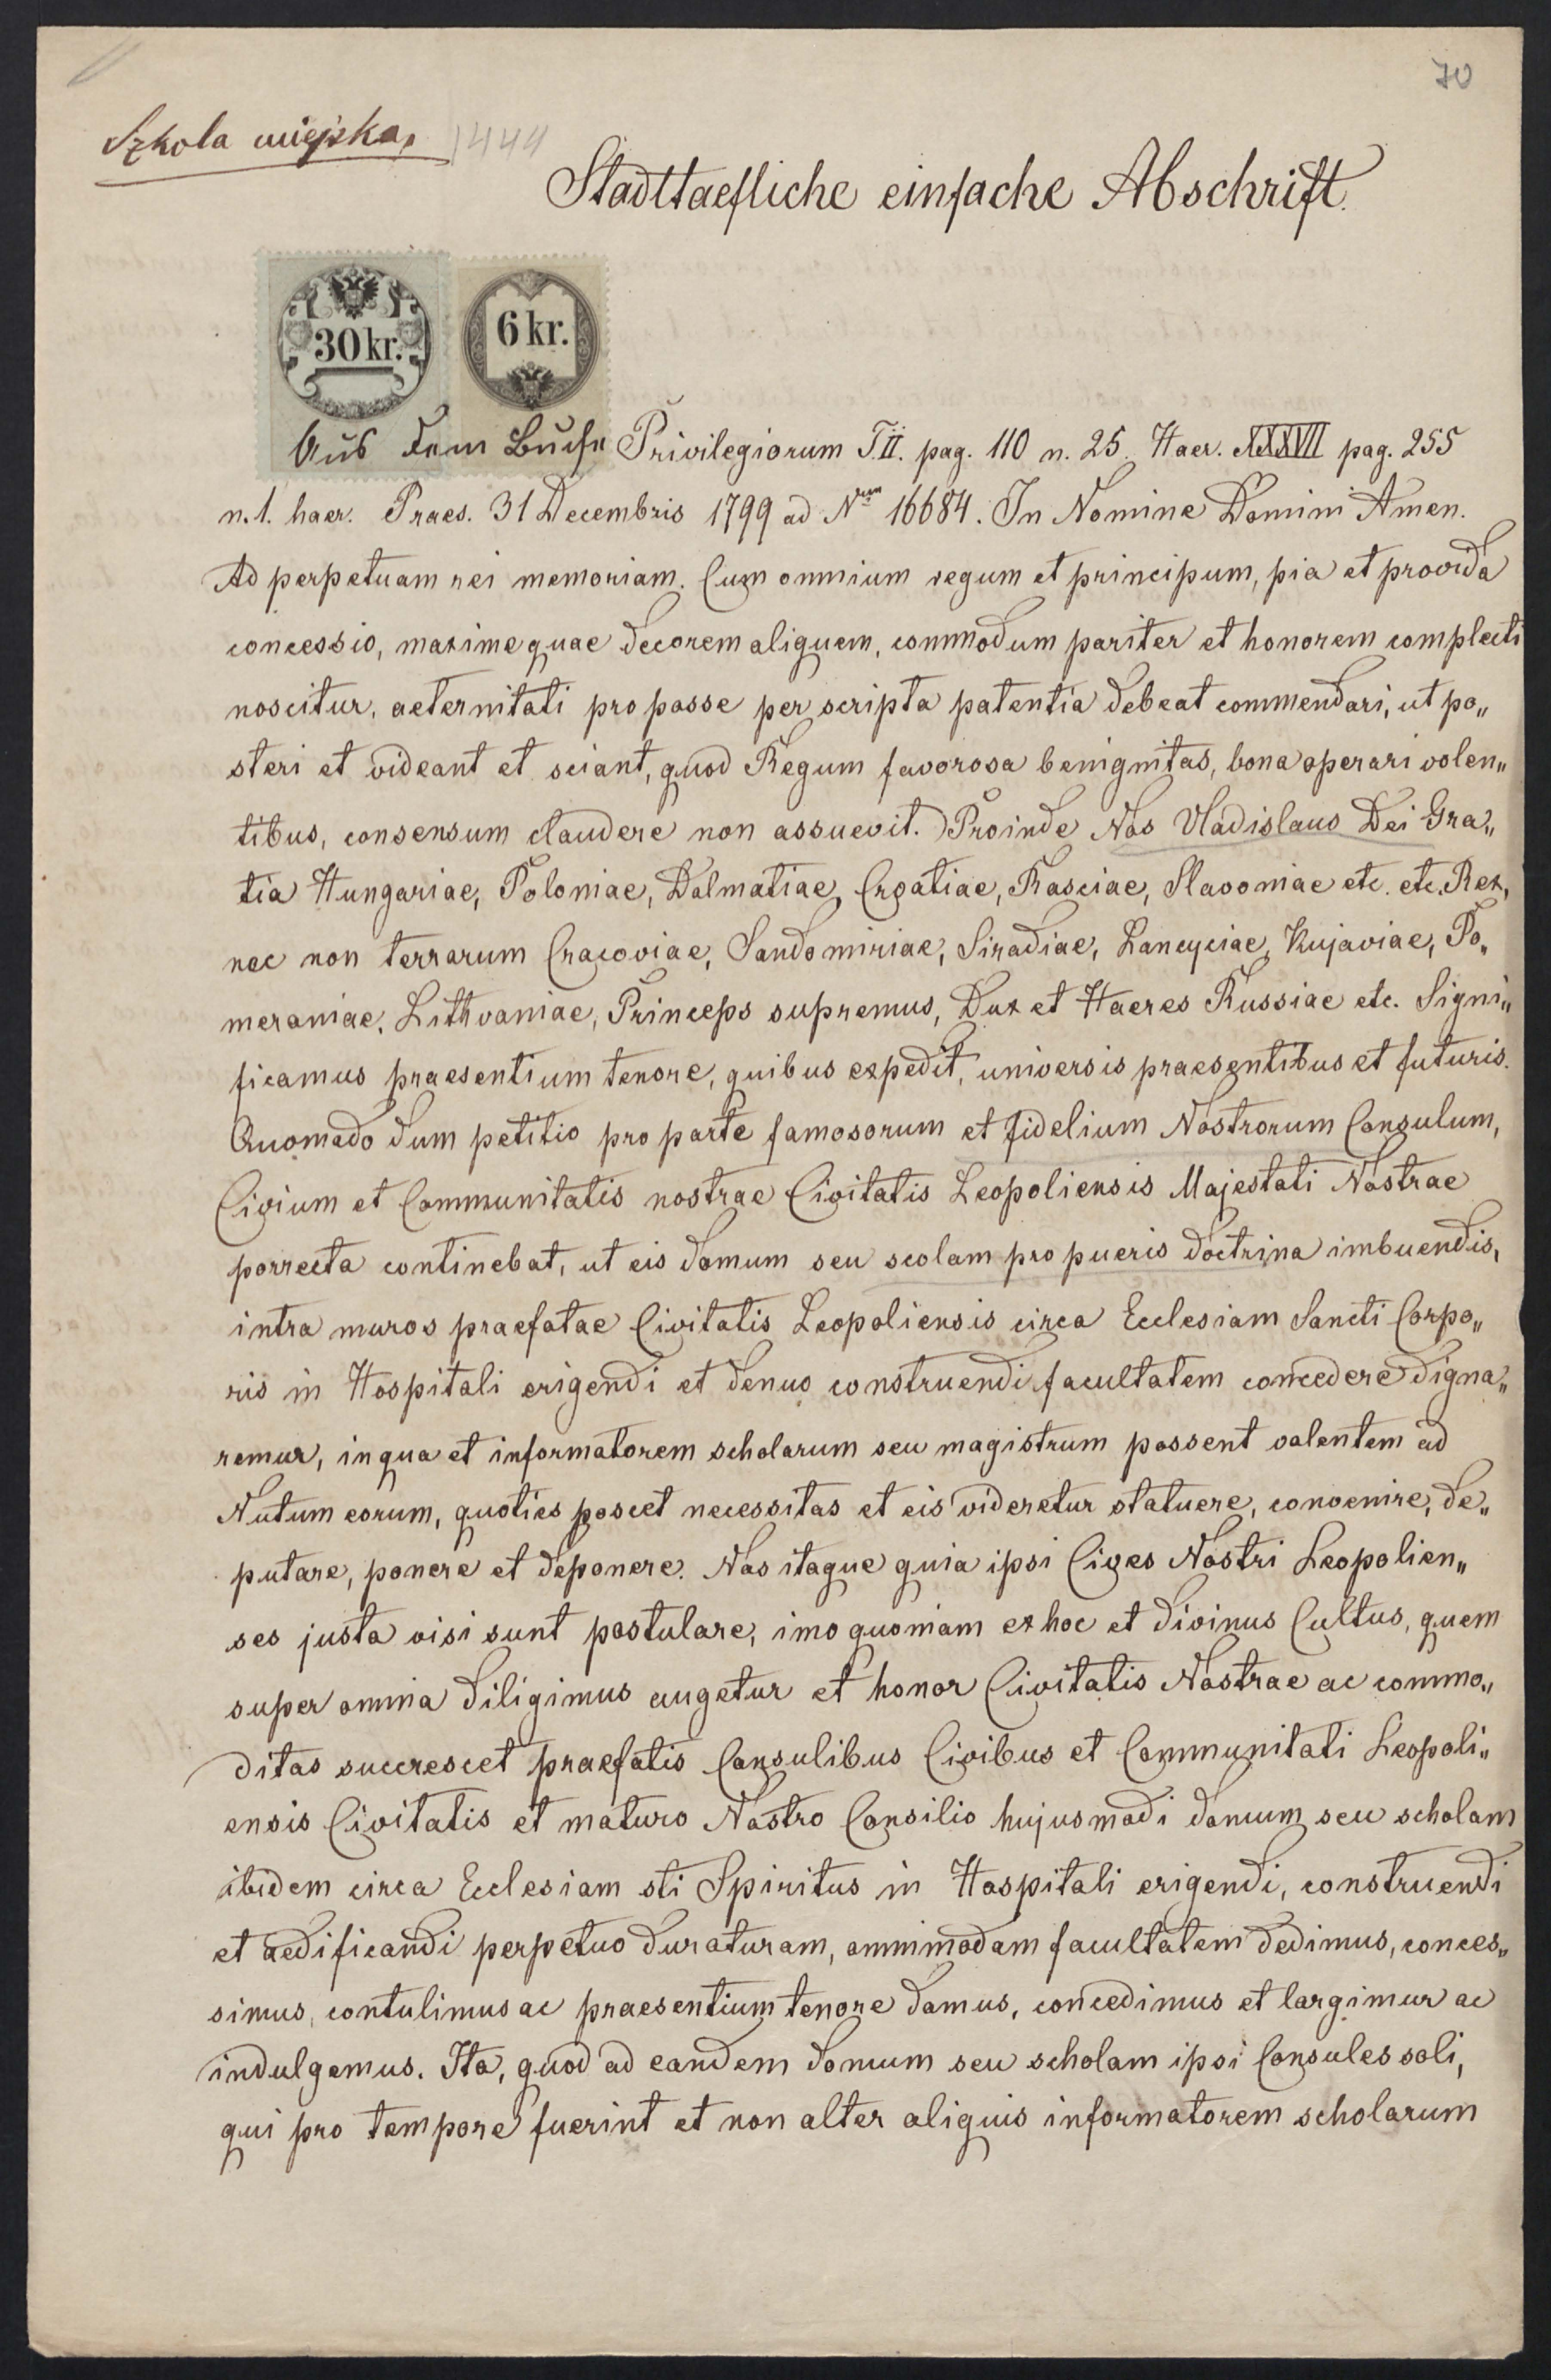 70
Szkola miejska, 1444
Stadttaefliche einfache Abschrift.
30 kr.
6 kr.
Aus dem Buche Privilegiorum T. II. pag. 110 n. 25. Haer. XXXVII pag. 255
n. 1. haer. Praes. 31 Decembris 1799 ad Nrum 16684. In Nomine Domini Amen.
Ad perpetuam rei memoriam. Cum omnium regum et principum, pia et provida
concessio, maxime quae decorem aliquem, commodum pariter et honorem complecti
noscitur, aeternitati pro posse per scripta patentia debeat commendari, ut po„
steri et videant et sciant, quod Regum favorosa benignitas, bona operari volen„
tibus, consensum claudere non assuevit. Proinde Nos Vladislaus Dei Gra„
tia Hungariae, Poloniae, Dalmatiae, Croatiae, Rasciae, Slavoniae etc. etc. Rex,
nec non terrarum Cracoviae, Sandomiriae, Siradiae, Lancyciae, Kujaviae, Po„
meraniae, Lithvaniae, Princeps supremus, Dux et Haeres Russiae etc. Signi„
ficamus praesentium tenore, quibus expedit, universis praesentibus et futuris.
Quomodo dum petitio pro parte famosorum et fidelium Nostrorum Consulum,
Civium et Communitatis nostrae Civitatis Leopoliensis Majestati Nostrae
porrecta continebat, ut eis domum seu scolam pro pueris doctrina imbuendis,
intra muros praefatae Civitatis Leopoliensis circa Ecclesiam Sancti Corpo„
ris in Hospitali erigendi et denuo construendi facultatem concedere digna„
remur, in qua et informatorem scholarum seu magistrum possent valentem ad
Nutum eorum, quoties poscet necessitas et eis videretur statuere, convenire, de„
putare, ponere et deponere. Nos itaque quia ipsi Cives Nostri Leopolien„
ses justa visi sunt postulare, imo quoniam ex hoc et divinus Cultus, quem
super omnia diligimus augetur et honor Civitatis Nostrae ac commo„
ditas succrescet praefatis Consulibus Civibus et Communitati Leopoli„
ensis Civitatis et maturo Nostro Consilio hujusmodi domum seu scholam
ibidem circa Ecclesiam sti Spiritus in Hospitali erigendi, construendi
et aedificandi perpetuo duraturam, ommimodam facultatem dedimus, conces„
simus, contulimus ac praesentium tenore damus, concedimus et largimur ac
indulgemus. Ita, quod ad eandem domum seu scholam ipsi Consules soli,
qui pro tempore fuerint et non alter aliquis informatorem scholarum